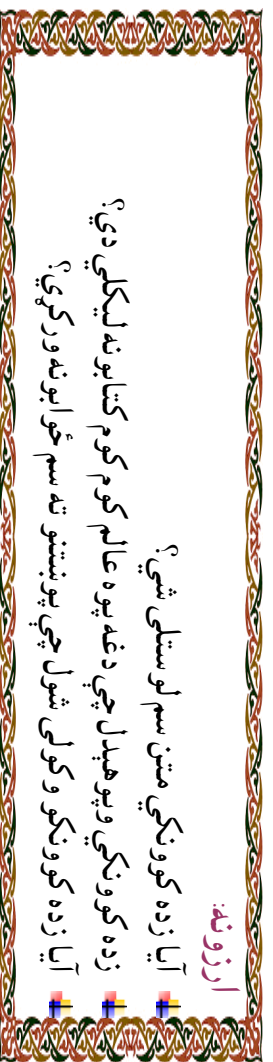 ارزونه:
آیا زده کوونکي متن سم لوستلی شي؟
زده کوونکي وپوهیدل چي دغه پوه عالم کوم کوم کتابونه لیکلي دي؟
آیا زده کوونکو وکولی شول چي پوښتنو ته سم ځوابونه ورکړي؟